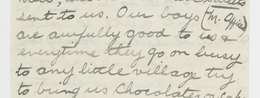 sent to us. Our boys (M. Office
are awfully good to us &
everytime they go on busy
to any little village try
to bring us Chocolates or